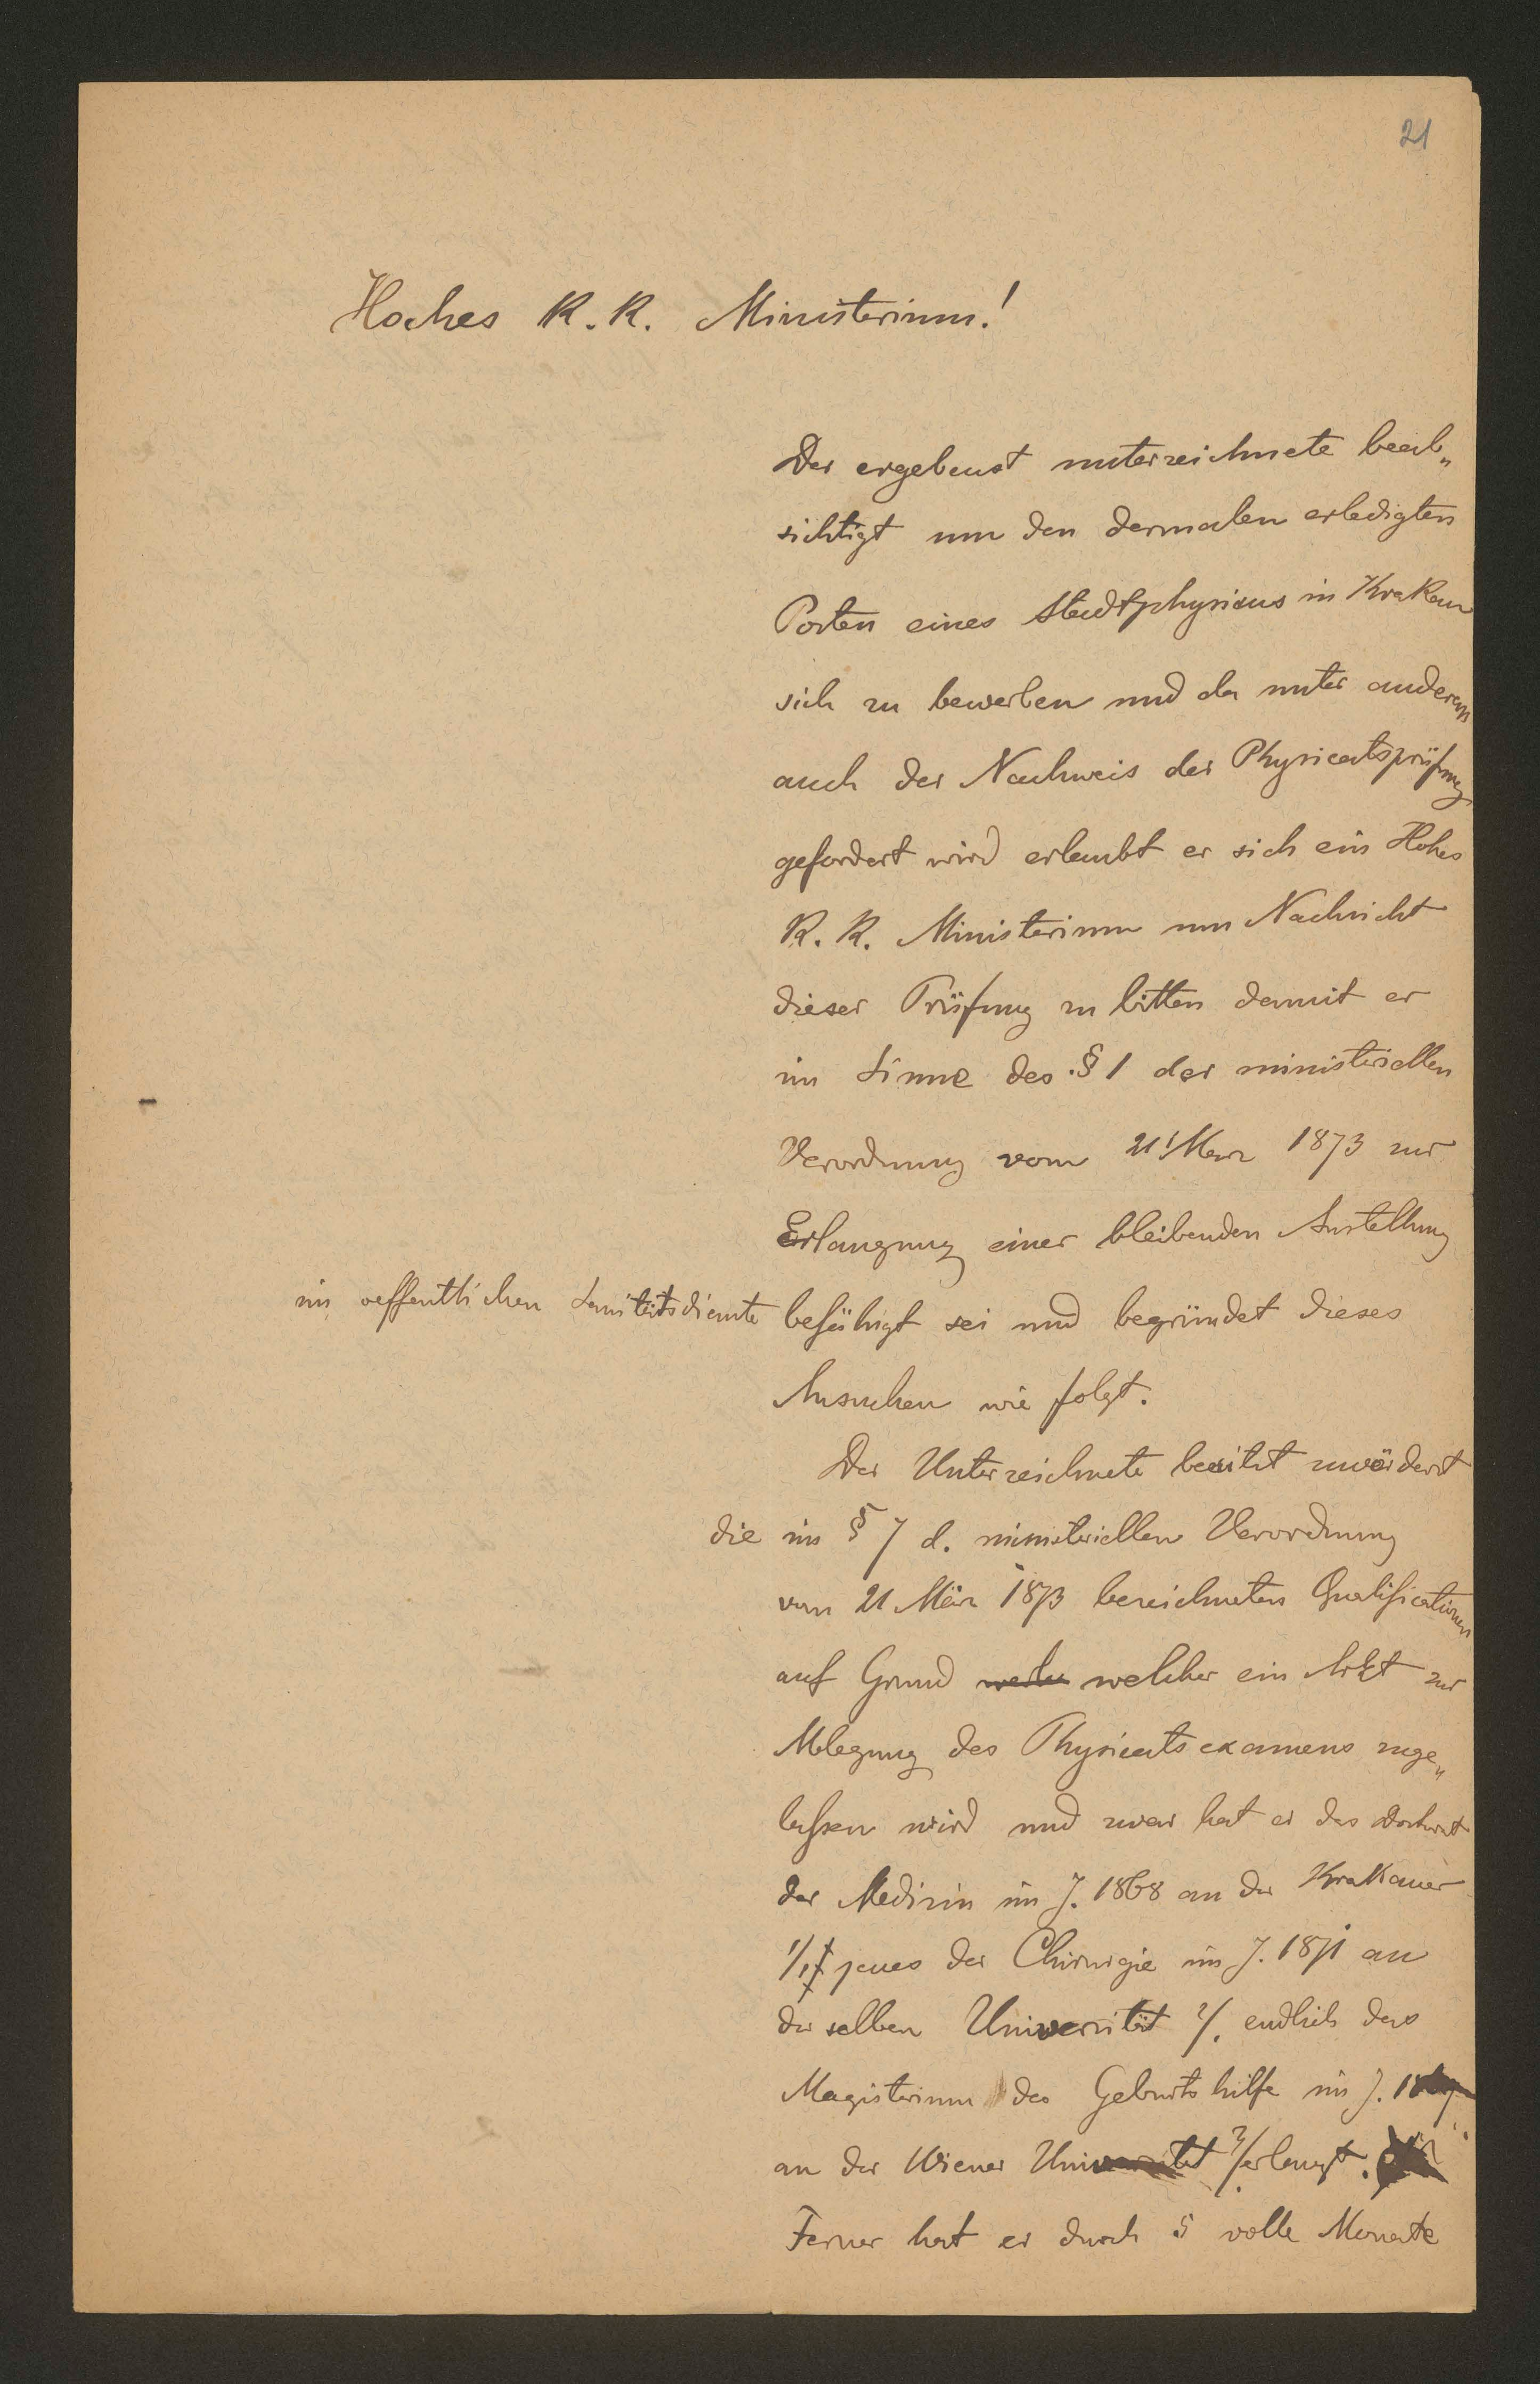 21
Hoches K. K. Ministerium!
Der ergebenst unterzeichnete beab„
sichtigt um den dermalen erledigten
Posten eines Stadtphysicus in Krakau
sich zu bewerben und da unter anderem
auch der Nachweis der Physicatsprüfung
gefordert wird erlaubt er sich ein Hohes
K. K. Ministerium um Nachsicht
dieser Prüfung zu bitten damit er
im Sinne des §1 der ministeriellen
Verordnung vom 21 März 1873 zur
Erlangung einer bleibenden Anstellung
im oeffentlichen Sanitätsdienste befähigt sei und begründet dieses
Ansuchen wie folgt.
Der Unterzeichnete besitzt zuvörderst
die im § 7 d. ministeriellen Verordnung
vom 21 März 1873 bezeichneten Qualificationen
auf Grund welcher ein Arzt zur
Ablegung des Physicatsexamens zuge„
lassen wird und zwar hat er das Doctorat
der Medizin im J. 1868 an der Krakauer
1/. jenes der Chirurgie im J. 1871 an
derselben Universität 2/. endlich das
Magisterium der Geburtshilfe im J.
an der Wiener Universität 3/. erlangt.
Ferner hat er durch 5 volle Monate